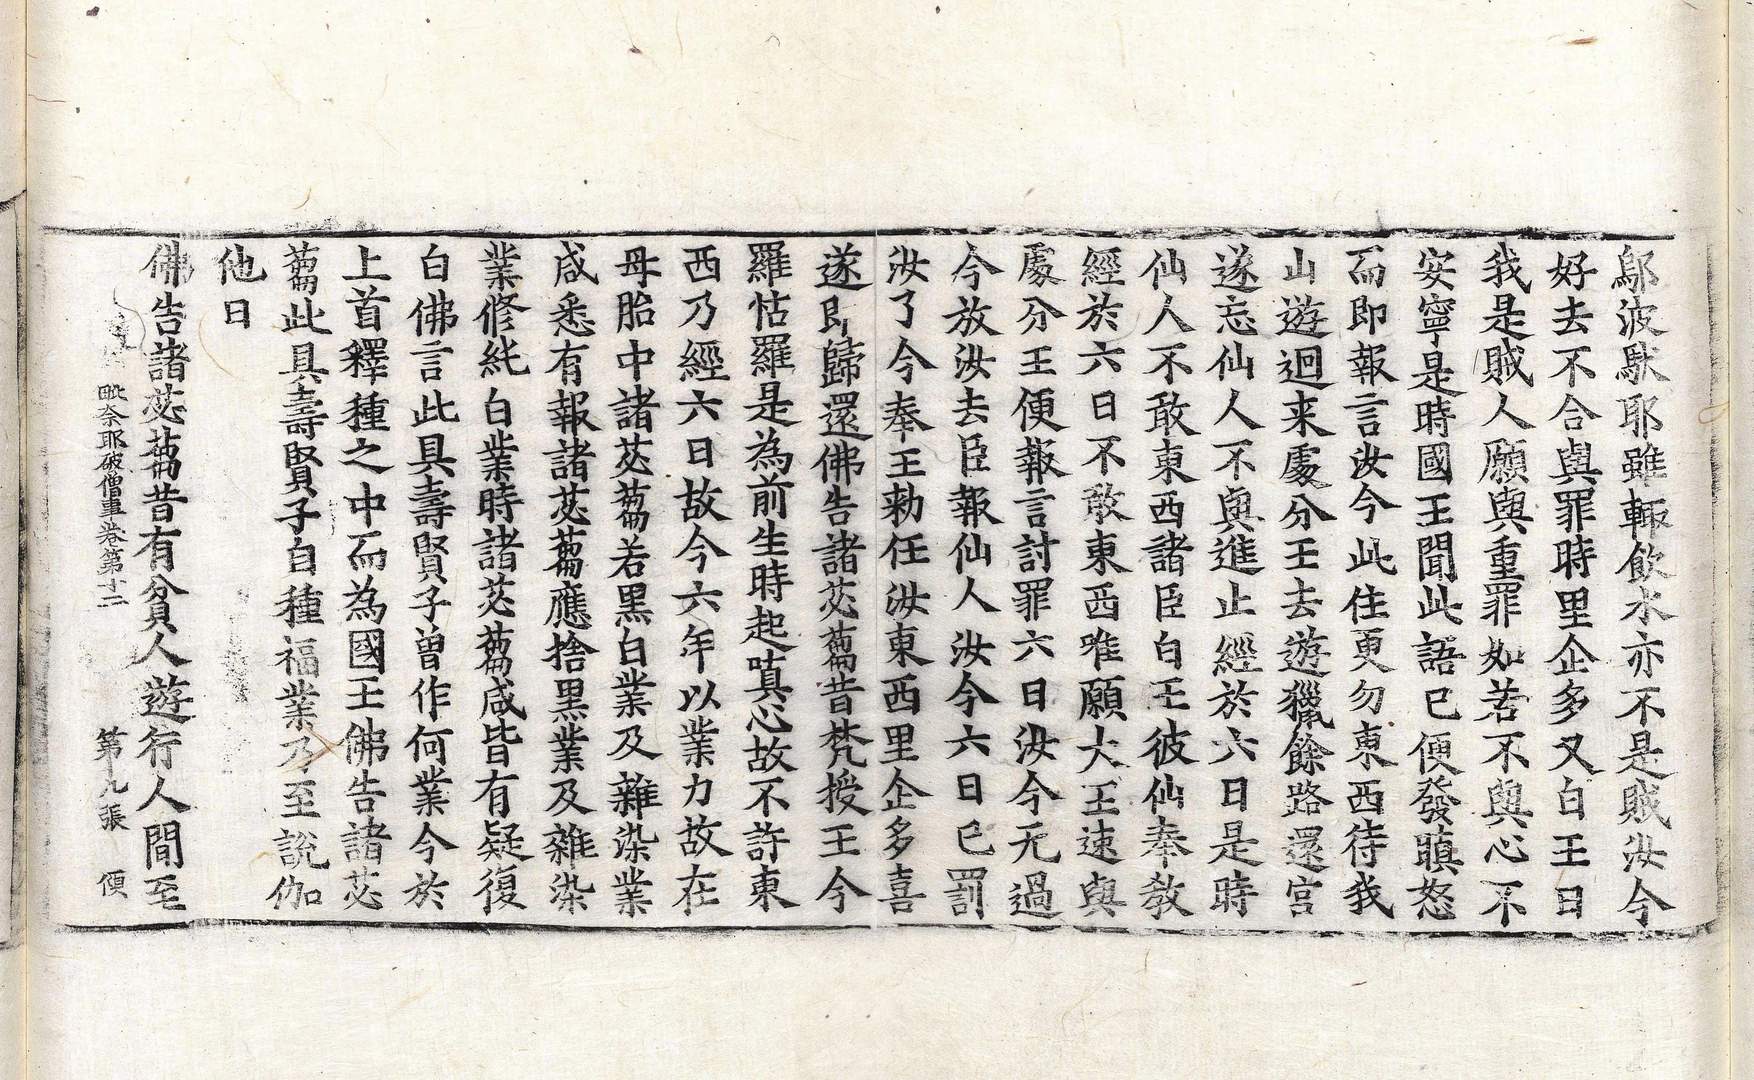 鄔波馱耶雖輙飲水亦不是賊汝今
好去不合與罪時里企多又白王曰
我是賊人願與重罪如若不與心不
安寧是時國王聞此語已便發瞋怒
而即報言汝今此住更勿東西待我
山遊迴来處分王去遊獵餘路還宮
遂忘仙人不與進止經於六日是時
仙人不敢東西諸臣白王彼仙奉教
經於六日不敢東西唯願大王速與
處分王便報言討罪六日汝今无過
今放汝去臣報仙人汝今六日已罰
汝了今奉王勑任汝東西里企多喜
遂即歸還佛告諸苾蒭昔梵授王今
羅怙羅是為前生時起嗔心故不許東
西乃經六日故今六年以業力故在
母胎中諸苾蒭若黑白業及雜染業
咸悉有報諸苾蒭應捨黑業及雜染
業修純白業時諸苾蒭咸皆有疑復
白佛言此具壽賢子曾作何業今於
上首釋種之中而為國王佛告諸苾
蒭此具壽賢子自種福業乃至說伽
他曰
佛告諸苾蒭昔有貧人遊行人間至
毗奈耶破僧事卷第十二 第九張 傎